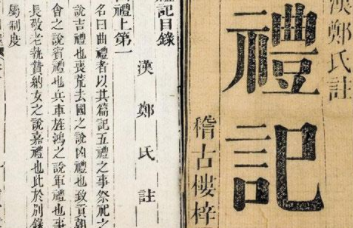 漢鄭氏註
禮記
稽古樓梓
禮目錄
曲禮上第一
漢鄭氏註
名曰曲禮者以其篇記五禮之事祭祀之
說吉禮也喪荒去國之說凶禮也致貢朝
會之說賓禮也兵車旌鴻之說軍禮也事
長敬老執贄納女之說嘉禮也此於別錄
屬制度